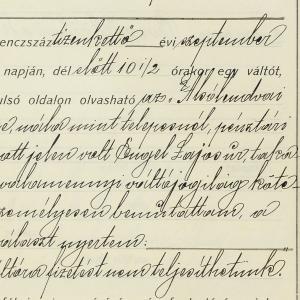 enczszáz tizenkettő évi szeptember
napján, dél előtt 10 1/2 órakor egy váltót,
ulsó oldalon olvasható az Alsólendvai
, mint telepesnél, pénztári
ott jelen volt Engel Lajos úr,
valamennyi váltójogilag köte
személyesen bemutattam, a
választ nyertem:
fizetést nem teljesíthetünk."